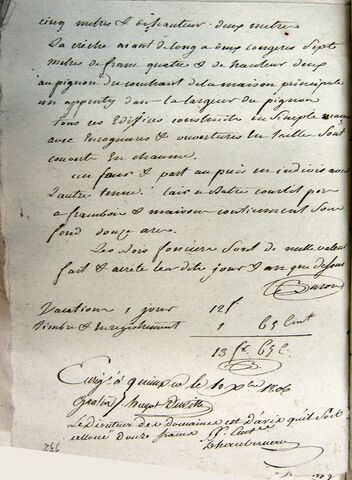 cinq metres & de hauteur deux metre
La créche aiant de long a deux longeres sept
metres de franc quatre & de hauteur deux
au pignon du couchant de la maison principale
un appenty dan la largeur du pignon
tous ces Edifices construits en simple
avec Encognures & ouvertures en taille sont
couvert En chaume.
un four & part au puis en indivis avec
L'autre tenue. l'air a Battre courtil por
a framboir & maison contiennent sous
fond douze ares.
Les Bois fonciers sont de nulle valeur
fait & areté les dits jour & an que dessus
Vacation 1 jour 12 f
Timbre & Enregistrement 1 65 Cent
13 fr. 65 c.
Enrg. à quimper le 10 Xbre 1806
Le directeur des domaines est d'avis qu'il soit
alloué douze francs